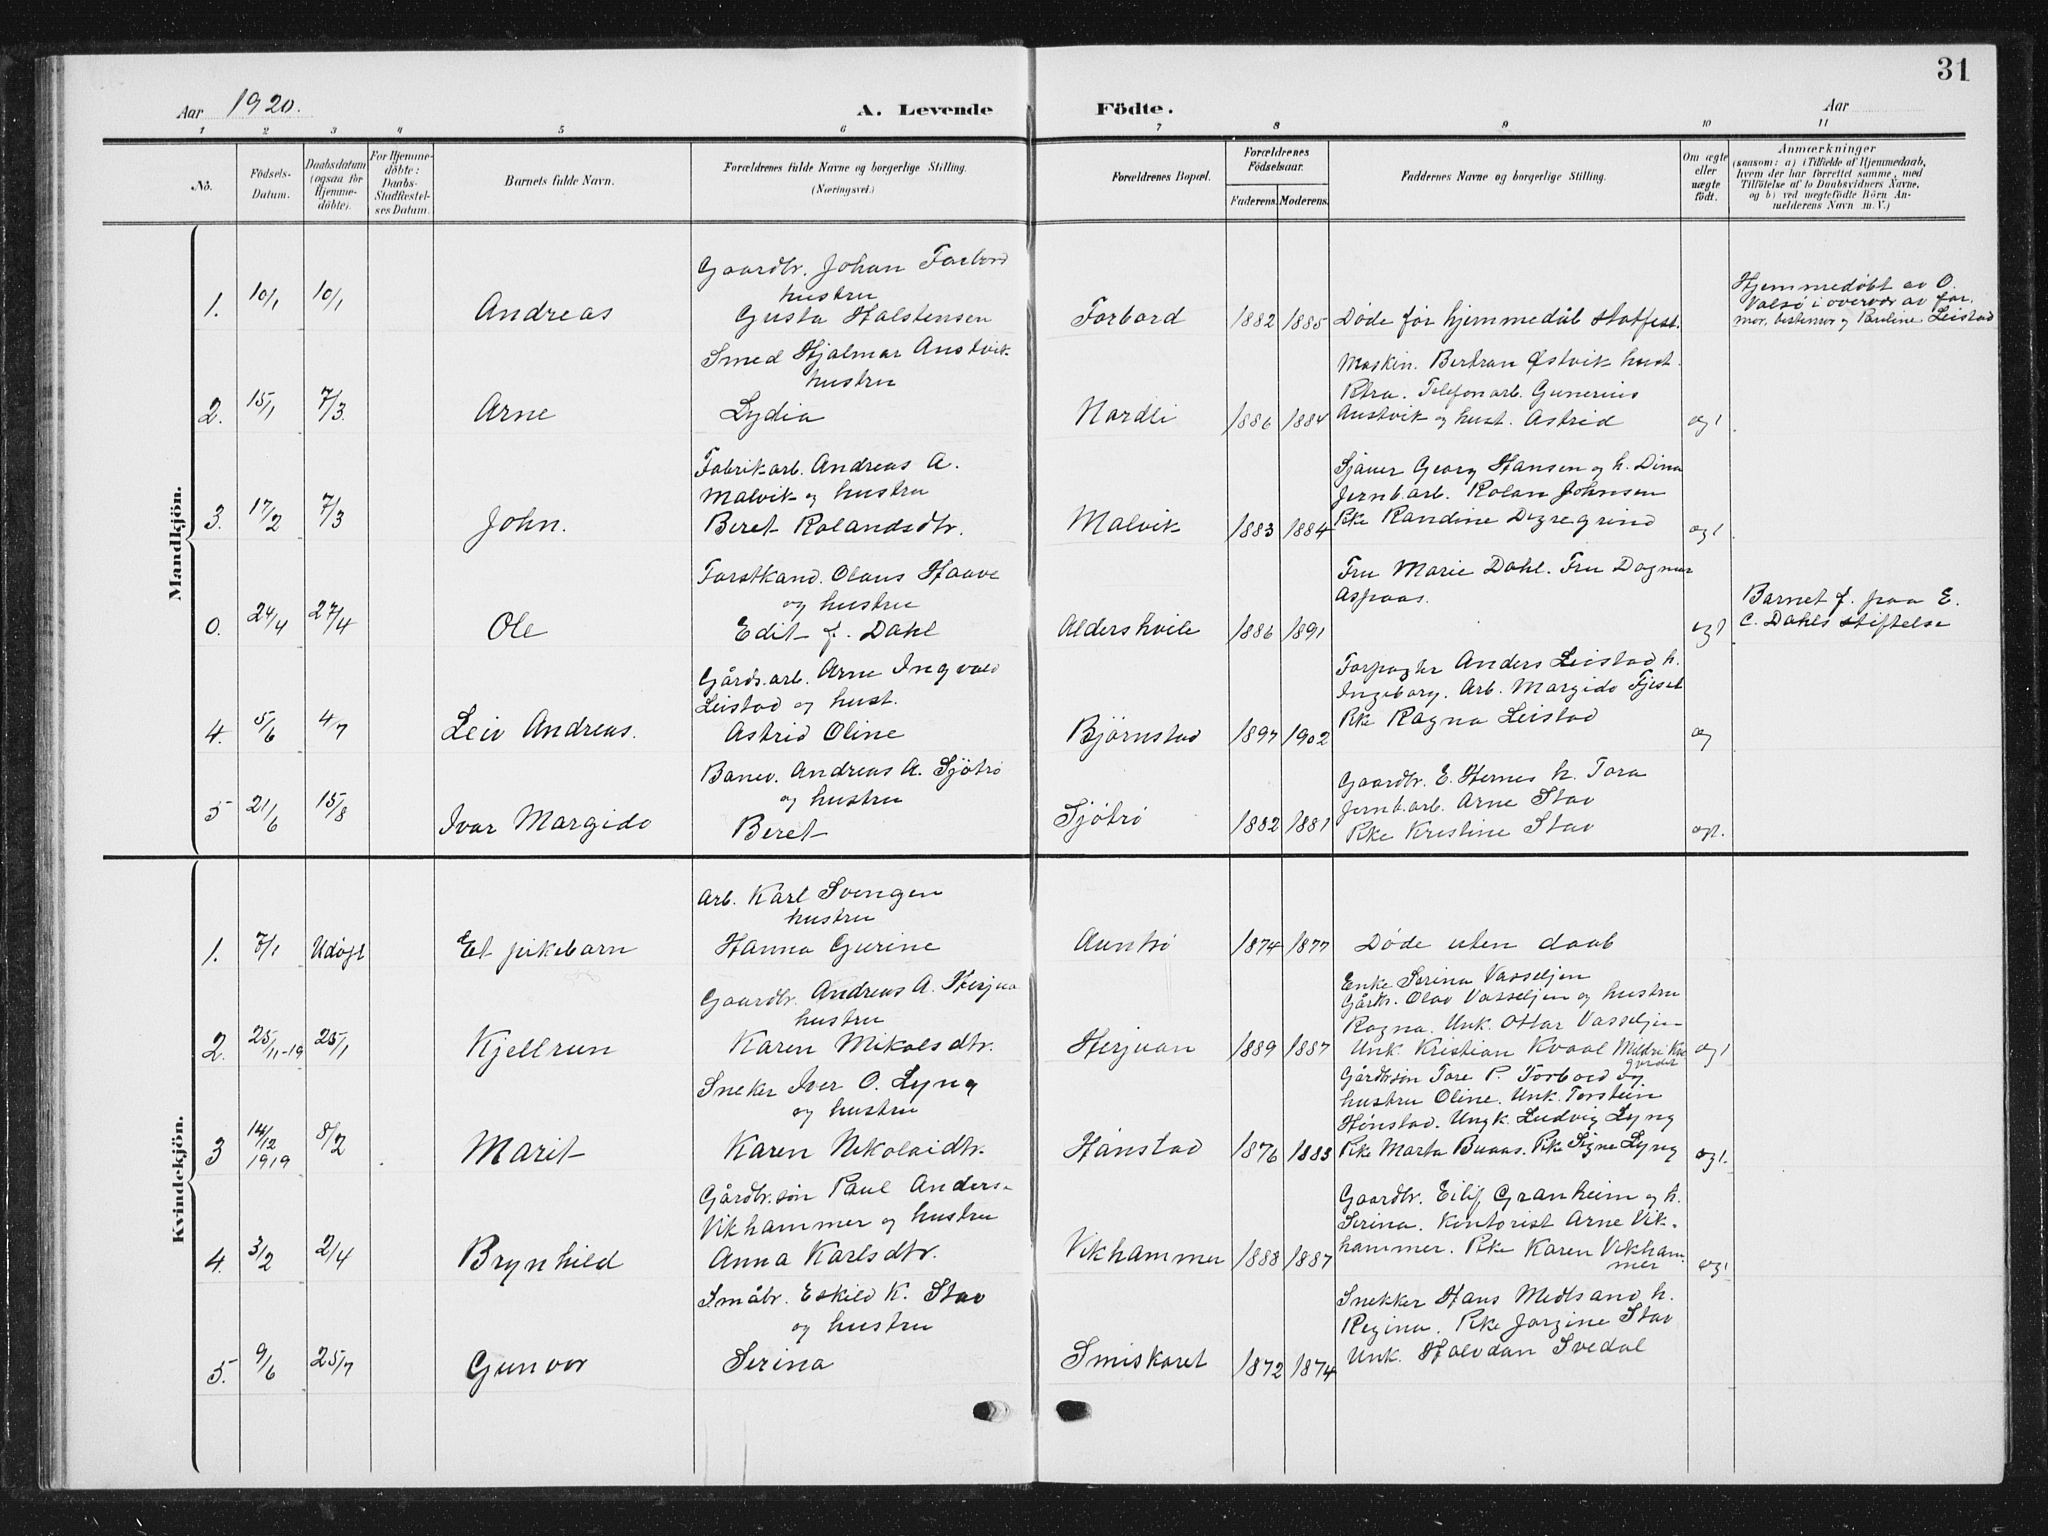 31
Aar 1920.
A. Levende Födte.
Aar
1 2 3 4 5 6 7 8 9 10 11
No.
Födsels-Datum.
Daabsdatum (ogsaa for Hjemmedöbte).
For Hjemmedöbte: Daabs-Stadfestelses Datum.
Barnets fulde Navn.
Forældrenes fulde Navne og borgerlige Stilling. (Næringsvei.)
Forældrenes Bopæl.
Forældrenes Födselsaar.
Faderens. Moderens.
Faddernes Navne og borgerlige Stilling.
Om ægte eller uægte födt.
Anmærkninger
(saasom: a) i Tilfælde af Hjemmedaab,
hvem der har forrettet samme, med
Tilföielse af to Daabsvidners Navne,
og b) ved uægtefödte Börn An-
melderens Navn m. V.)
Mandkjön.
Gaardbr. Johan Forbord
hustru
1. 10/1 10/1 Andreas Gusta Halstensen Forbord 1882 1885 Døde før hjemmedåb statfest.
Hjemmedøbt av O.
Valsø i overvær av far,
mor, bestemor og Pauline Leistad
Smed Hjalmar Austvik
hustru
2. 15/1 7/3. Arne Lydia Nordli 1886 1884
Maskin. Bertran Østvik hust.
Petra. Telefonarb. Gunerius
Austvik og hust. Astrid ægt
Fabrikarb. Andreas A.
Malvik og hustru
3. 17/2 7/3 John. Beret Rolandsdtr. Malvik 1883 1884
Sjauer Georg Hansen og h. Dina
Jernb.arb. Rolan Johnsen
Pke Randine Dyregrind ægt
Forstkand. Olaus Haave
og hustru
0. 24/4 27/4 Ole Edit f. Dahl Aldershvile 1886 1891
Fru Marie Dahl. Fru Dagmar
Aspaas. ægt
Barnet f. paa E.
C. Dahls stiftelse
Gårds.arb. Arne Ingvald
Leistad og hust.
4. 5/6 4/7 Leiv Andreas. Astrid Oline Bjørnstad 1897 1902
Forpagter Anders Leistad h.
Ingeborg. Arb. Margido Fjeset
Pke Ragna Leistad æg
Banev. Andreas A. Sjøtrø
og hustru
5 21/6 15/8 Ivar Margido Beret Sjøtrø 1882 1881
Gaardbr. E. Hernes h. Tora
Jernb.arb. Arne Stav
Pke Kristine Stav ægt.
Kvindekjön.
Arb. Karl Svengen
hustru
1. 7/1 Udøpt Et pikebarn Hanna Gurine Auntrø 1874 1877 Døde uten daab
Gaardbr. Andreas A. Herjuan
hustru
2. 25/11-19 25/1 Kjellrun Karen Mikalsdtr. Herjuan 1889 1887
Enke Serina Vasseljen
Gårdb. Olav Vasseljen og hustru
Ragna. Unk. Ottar Vasseljen
Unk. Kristian Kvaal ægt
Sneker Iver O. Lyng
og hustru
3 14/12 1919 8/2 Marit Karen Nikolaidtr. Hønstad 1876 1883
Gårdbrsøn Tore P. Forbord og
hustru Oline. Unk. Torstein
Hønstad. Ungk. Ludvig Lyng
Pke Marta Buaas. Pke Signe Lyng ægt.
Gårdbr.søn Paul Anders.
Vikhammer og hustru
4. 3/2 2/4 Brynhild Anna Karlsdtr. Vikhammer 1888 1887
Gaardbr. Eilif Granheim og h.
Serina. Kontorist Arne Vik-
hammer. Pke Karen Vikham-
mer ægt
Småbr. Eskild K. Stav
og hustru
5. 9/6 25/7 Gunvor Serina Smiskaret 1872 1874
Snekker Hans Midtsand h.
Regina. Pke Jørgine Stav
Unk. Halvdan Svedal